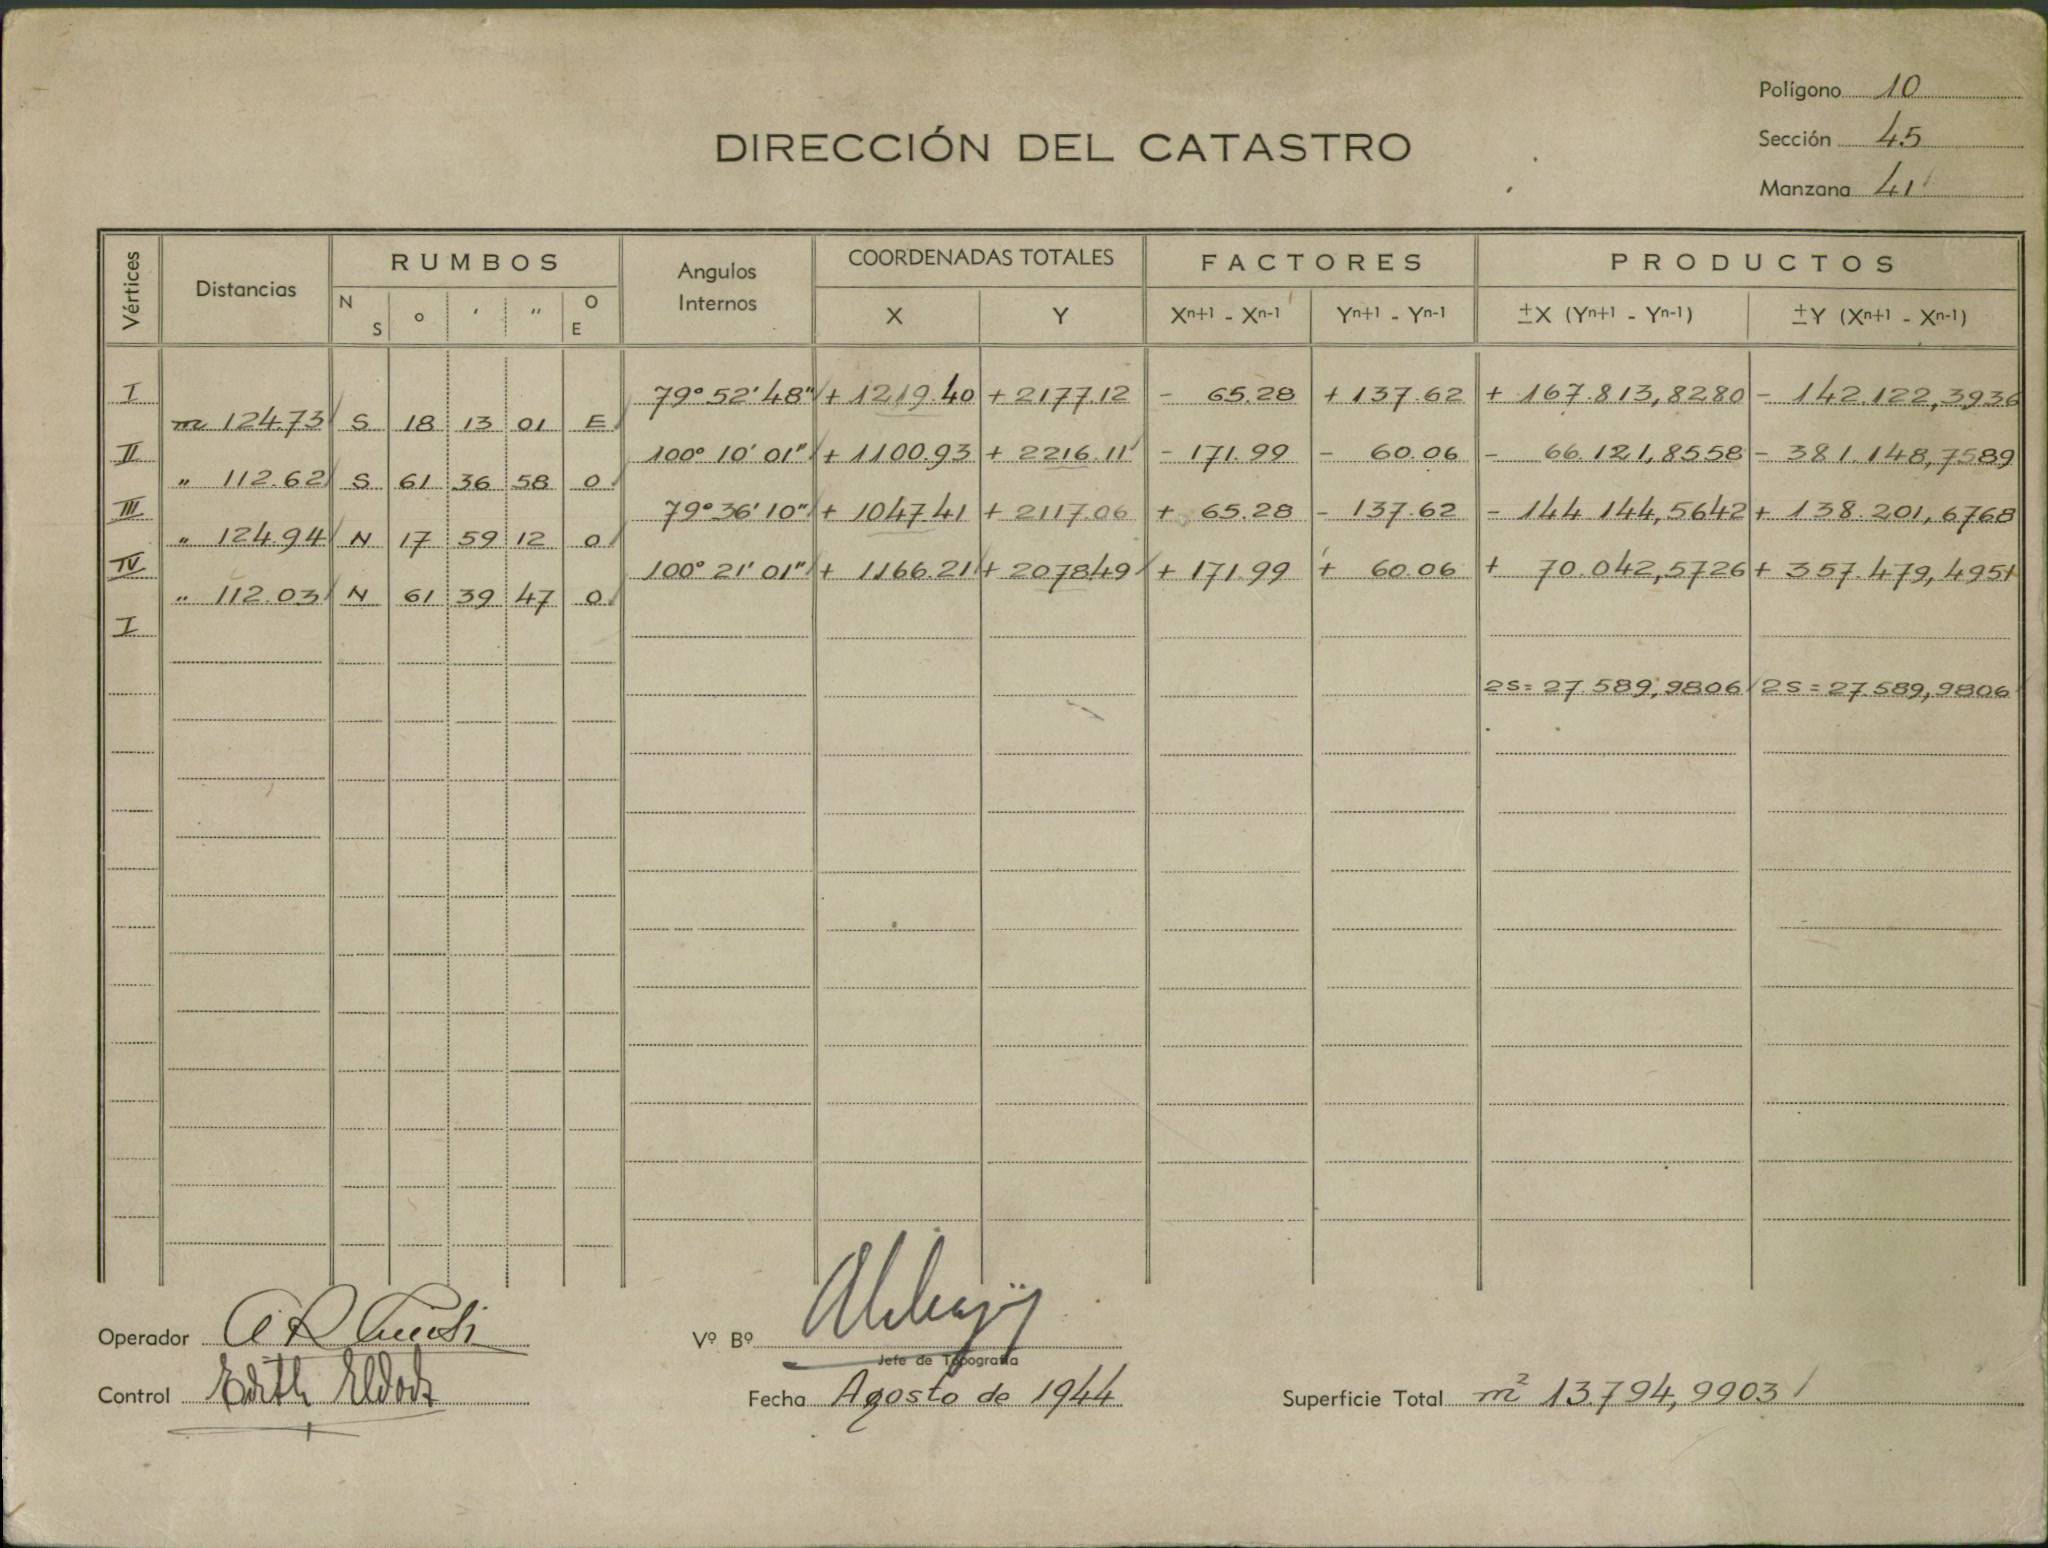 Polígono 10
DIRECCIÓN DEL CATASTRO
Sección 45
Manzana 41
Vértices Distancias RUMBOS Angulos Internos COORDENADAS TOTALES FACTORES PRODUCTOS
N S ° ' " O E X Y Xn+1 - Xn-1 Yn+1 - Yn-1 ±X (Yn+1 - Yn-1) ±Y (Xn+1 - Xn-1)
I 79° 52' 48" + 1219.40 + 2177.12 - 65.28 + 137.62 + 167.813,8280 - 142.122,3936
m 124.73 S 18 13 01 E
II 100° 10' 01" + 1100.93 + 2216.11 - 171.99 - 60.06 - 66.121,8558 - 381.148,7589
" 112.62 S 61 36 58 O
III 79° 36' 10" + 1047.41 + 2117.06 + 65.28 - 137.62 - 144 144,5642 + 138.201,6768
" 124.94 N 17 59 12 O
IV 100° 21' 01" + 1166.21 + 2078.49 + 171.99 + 60.06 + 70.042,5726 + 357.479,4951
" 112.03 N 61 39 47 O
I
2S = 27.589,9806 2S = 27.589,9806
Operador Vº Bº
Jefe de Topografía
Control Edith Fecha Agosto de 1944 Superficie Total m² 13.794,9903